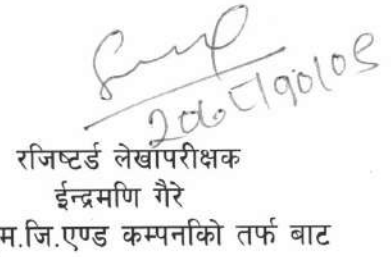 रजिष्टर्ड लेखापरीक्षक
ईन्द्रमणि गैरे
म.जि.एण्ड कम्पनकिो तर्फ बाट